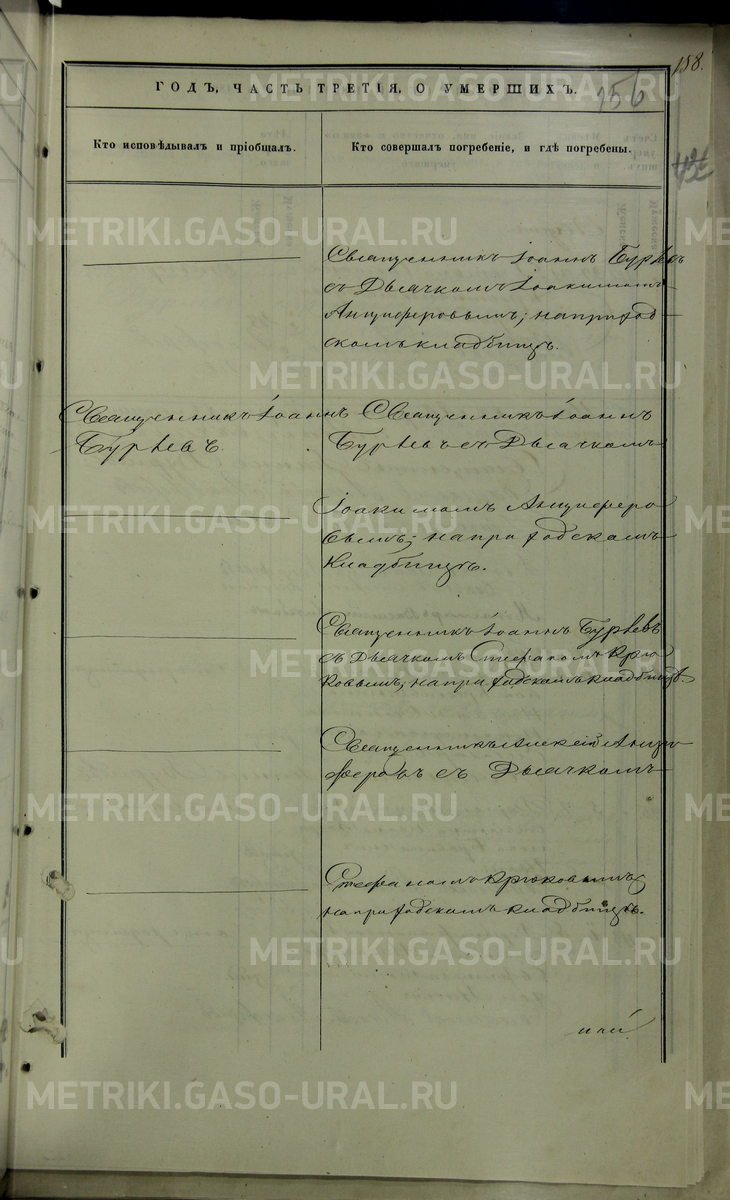 158.
ГОДЪ, ЧАСТЬ ТРЕТІЯ, О УМЕРШИХЪ.
156
Кто исповѣдывалъ и пріобщалъ.
Кто совершалъ погребеніе, и гдѣ погребены.
Священникъ Іоаннъ
Бурневъ.
Священникъ Іоаннъ Бурневъ
съ Дьячкомъ Іоакимомъ
Анциферовымъ; на приход-
скомъ кладбищѣ.
Священникъ Іоаннъ
Бурневъ съ Дьячкомъ
Іоакимомъ Анциферо
вымъ; на приходскомъ
кладбищѣ.
Священникъ Іоаннъ Бурневъ
съ Дьячкомъ Стефаномъ Крю
ковымъ; на приходскомъ кладбищѣ.
Священникъ Алексій Анци
феровъ съ Дьячкомъ
Стефаномъ Крюковымъ;
на приходскомъ кладбищѣ.
METRIKI.GASO-URAL.RU